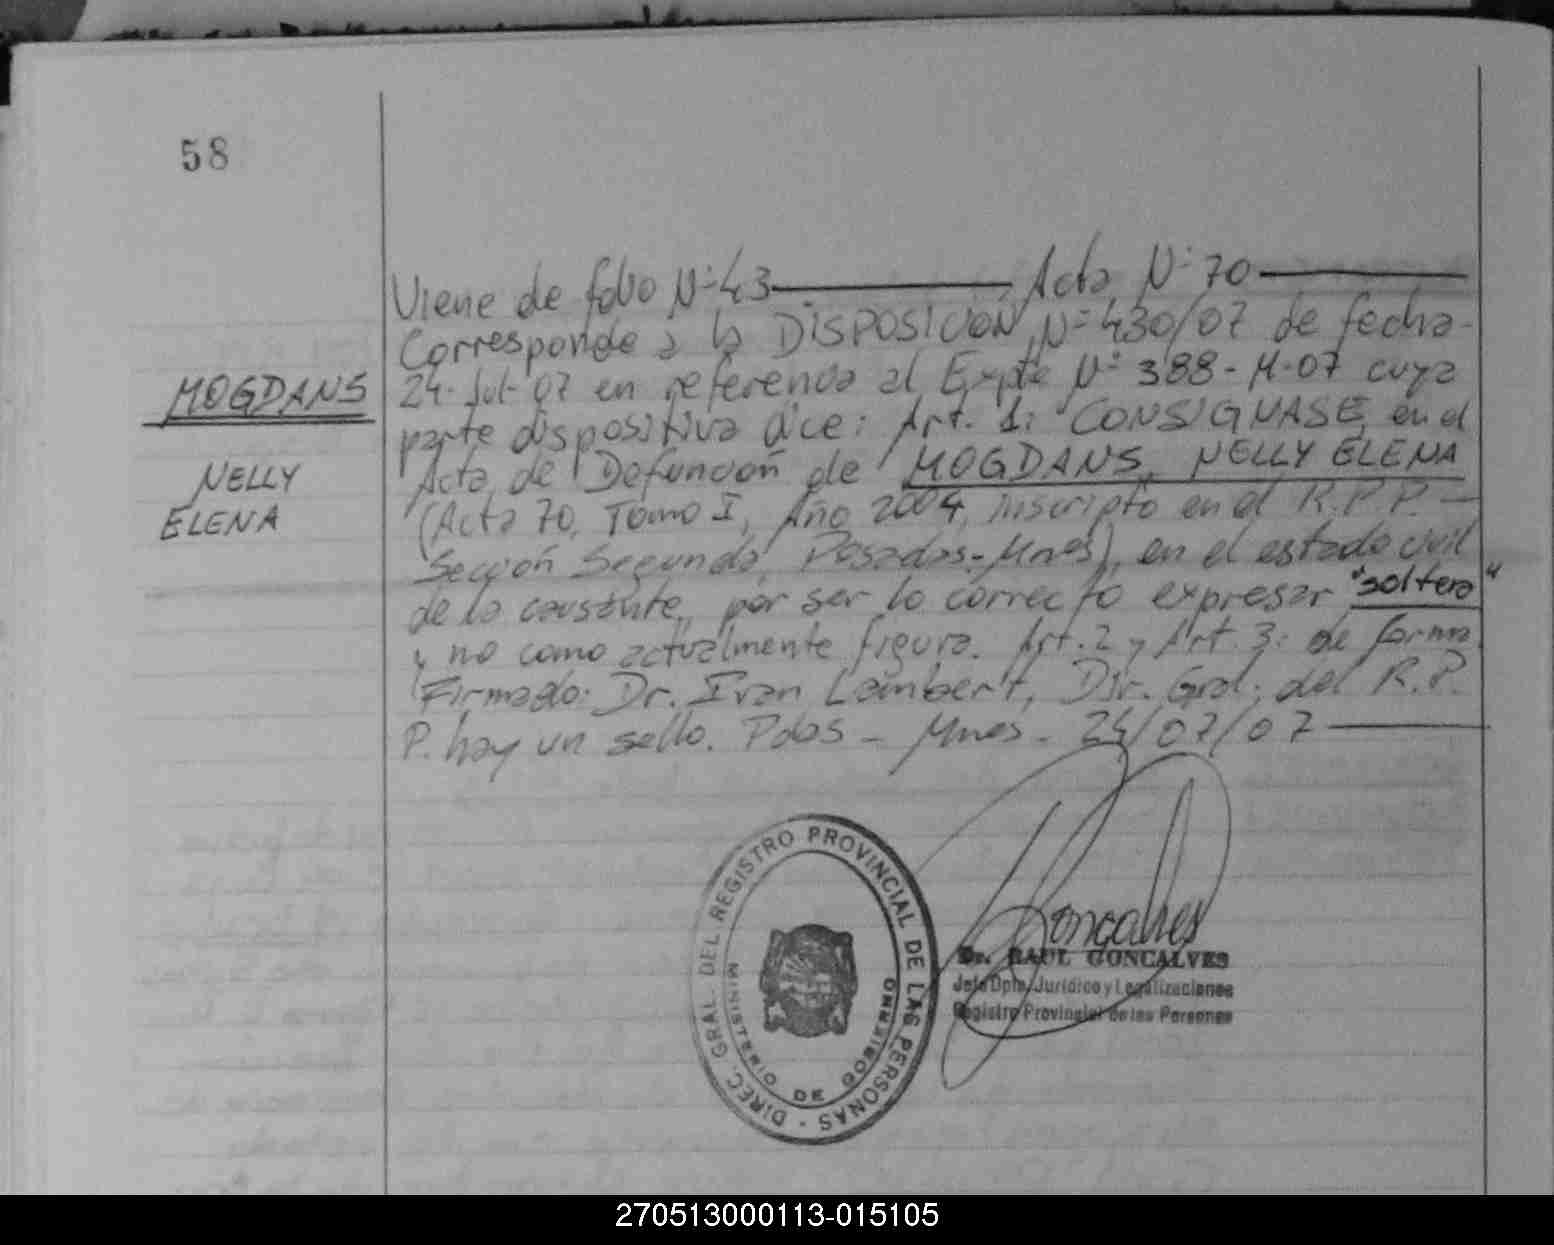 58
Viene de folio Nº 43 Acta Nº 70
Corresponde a la DISPOSICION Nº 430/07 de fecha
24-Jul-07 en referencia al Expte Nº 388-M-07 cuya
parte dispositiva dice: Art. 1: CONSIGNASE, en el
Acta de Defunción de MOGDANS, NELLY ELENA
(Acta 70, Tomo I, Año 2004, inscripto en el R.P.P.-
Sección Segunda, Posadas-Mnes), en el estado civil
de la causante, por ser lo correcto expresar "soltera"
y no como actualmente figura. Art. 2 y Art. 3: de forma
Firmado: Dr. Ivan Lambert, Dir. Gral. del R.P.
P. hay un sello. Pdas - Mnes - 24/07/07
MOGDANS
NELLY
ELENA
DIREC. GRAL. DEL REGISTRO PROVINCIAL DE LAS PERSONAS
MINISTERIO DE GOBIERNO
Goncalves
Dr. RAUL GONCALVES
Jefe Dpto. Jurídico y Legalizaciones
Registro Provincial de las Personas
270513000113-015105